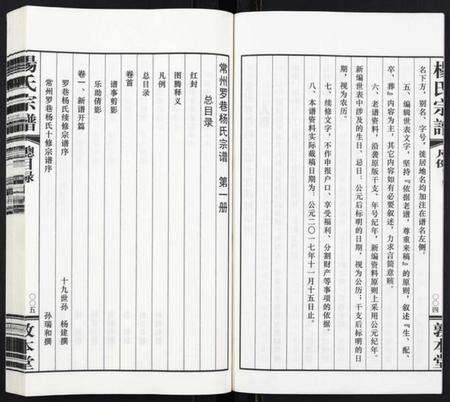 楊氏宗譜
凡例
〇〇四
敦本堂
名下方，别名、字号，徙居地名均加注在谱名左侧。
五、编辑世表文字，坚持『依据老谱，尊重来稿』的原则，叙述『生、配、
卒、葬』内容为主，其它内容如有必要叙述，力求言简意赅。
六、老谱资料，沿袭原版干支、年号纪年，新编资料原则上采用公元纪年。
新编世表中涉及的生日、忌日：公元后标明的日期，视为公历；干支后标明的日
期，视为农历。
七、续修文字，不作申报户口、享受福利、分割财产等事项的依据。
八、本谱资料实际截稿日期为：公元二〇一七年十一月十五日止。
常州罗巷杨氏宗谱 第一册
总目录
红封
图腾释义
凡例
总目录
卷首
谱事剪影
乐助倩影
卷一、新谱开篇
罗巷杨氏续修宗谱序 十九世孙 杨建撰
常州罗巷杨氏十修宗谱序 孙瑞和撰
楊氏宗譜
總目錄
〇〇五
敦本堂